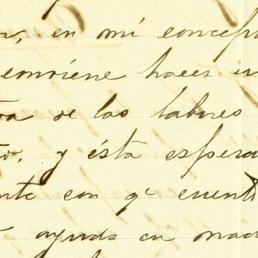 en mi concep
conviene hacer u
de las labores
y ésta espera
con qe cuent
ayuda en